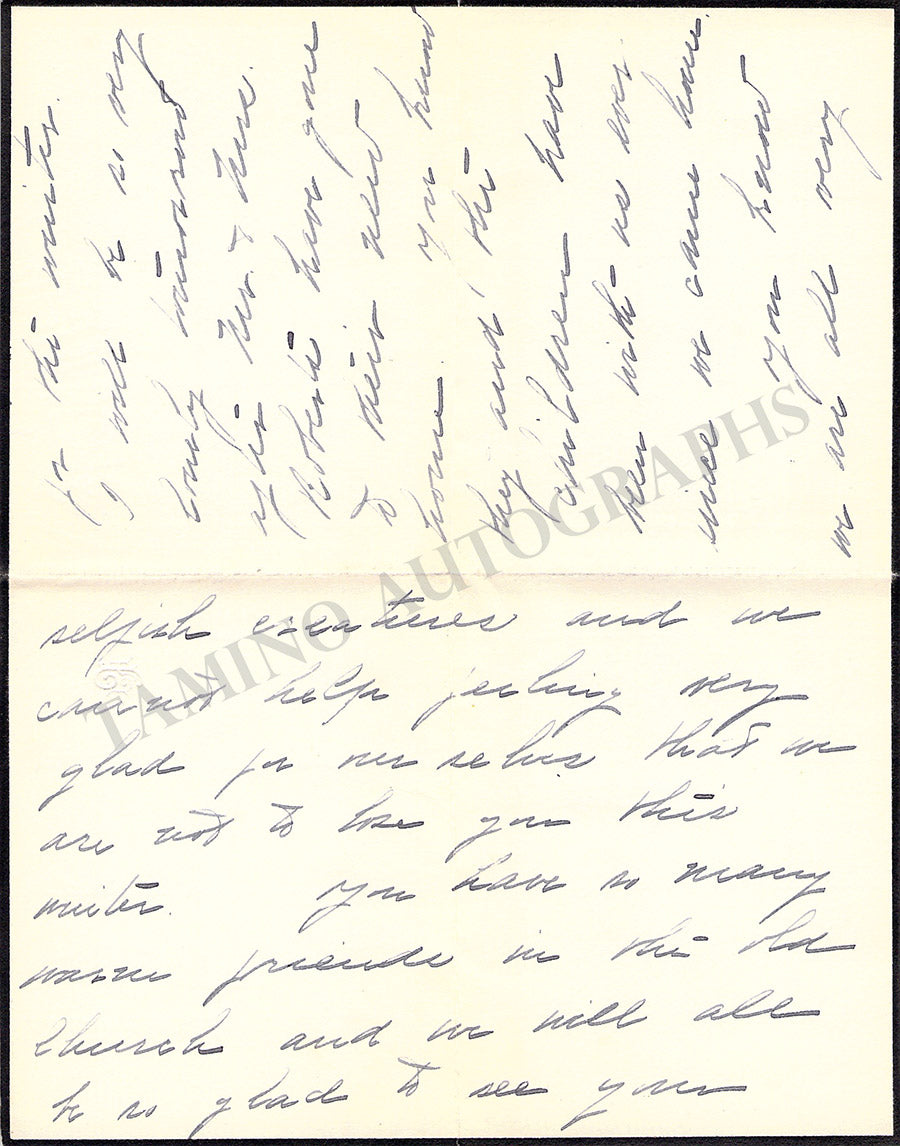 for the winter.
I will be so very
lonely tomorrow
after Mr. & Mrs.
Roberts have gone
to their new
home you know
they and the
children have
been with us ever
since we came home.
You know
we are all very
selfish creatures and we
cannot help feeling very
glad for ourselves that we
are not to lose you this
winter. You have so many
warm friends in this old
Church and we will all
be so glad to see you
TAMINO AUTOGRAPHS